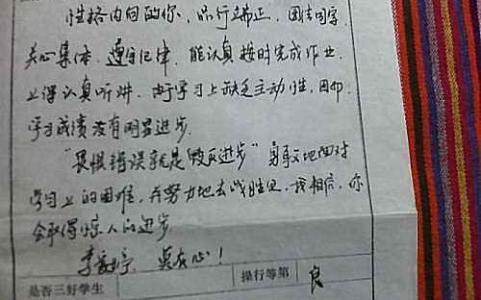 性格内向的你，品行端正，团结同学，
关心集体，遵守纪律，能认真按时完成作业，
上课认真听讲，由于学习上缺乏主动性，因而
学习成绩没有明显进步。
"畏惧错误就是毁灭进步"勇敢地面对
学习上的困难，并努力地去战胜它，我相信，你
会取得惊人的进步。
李 真在心！
是否三好学生 操行等第 良